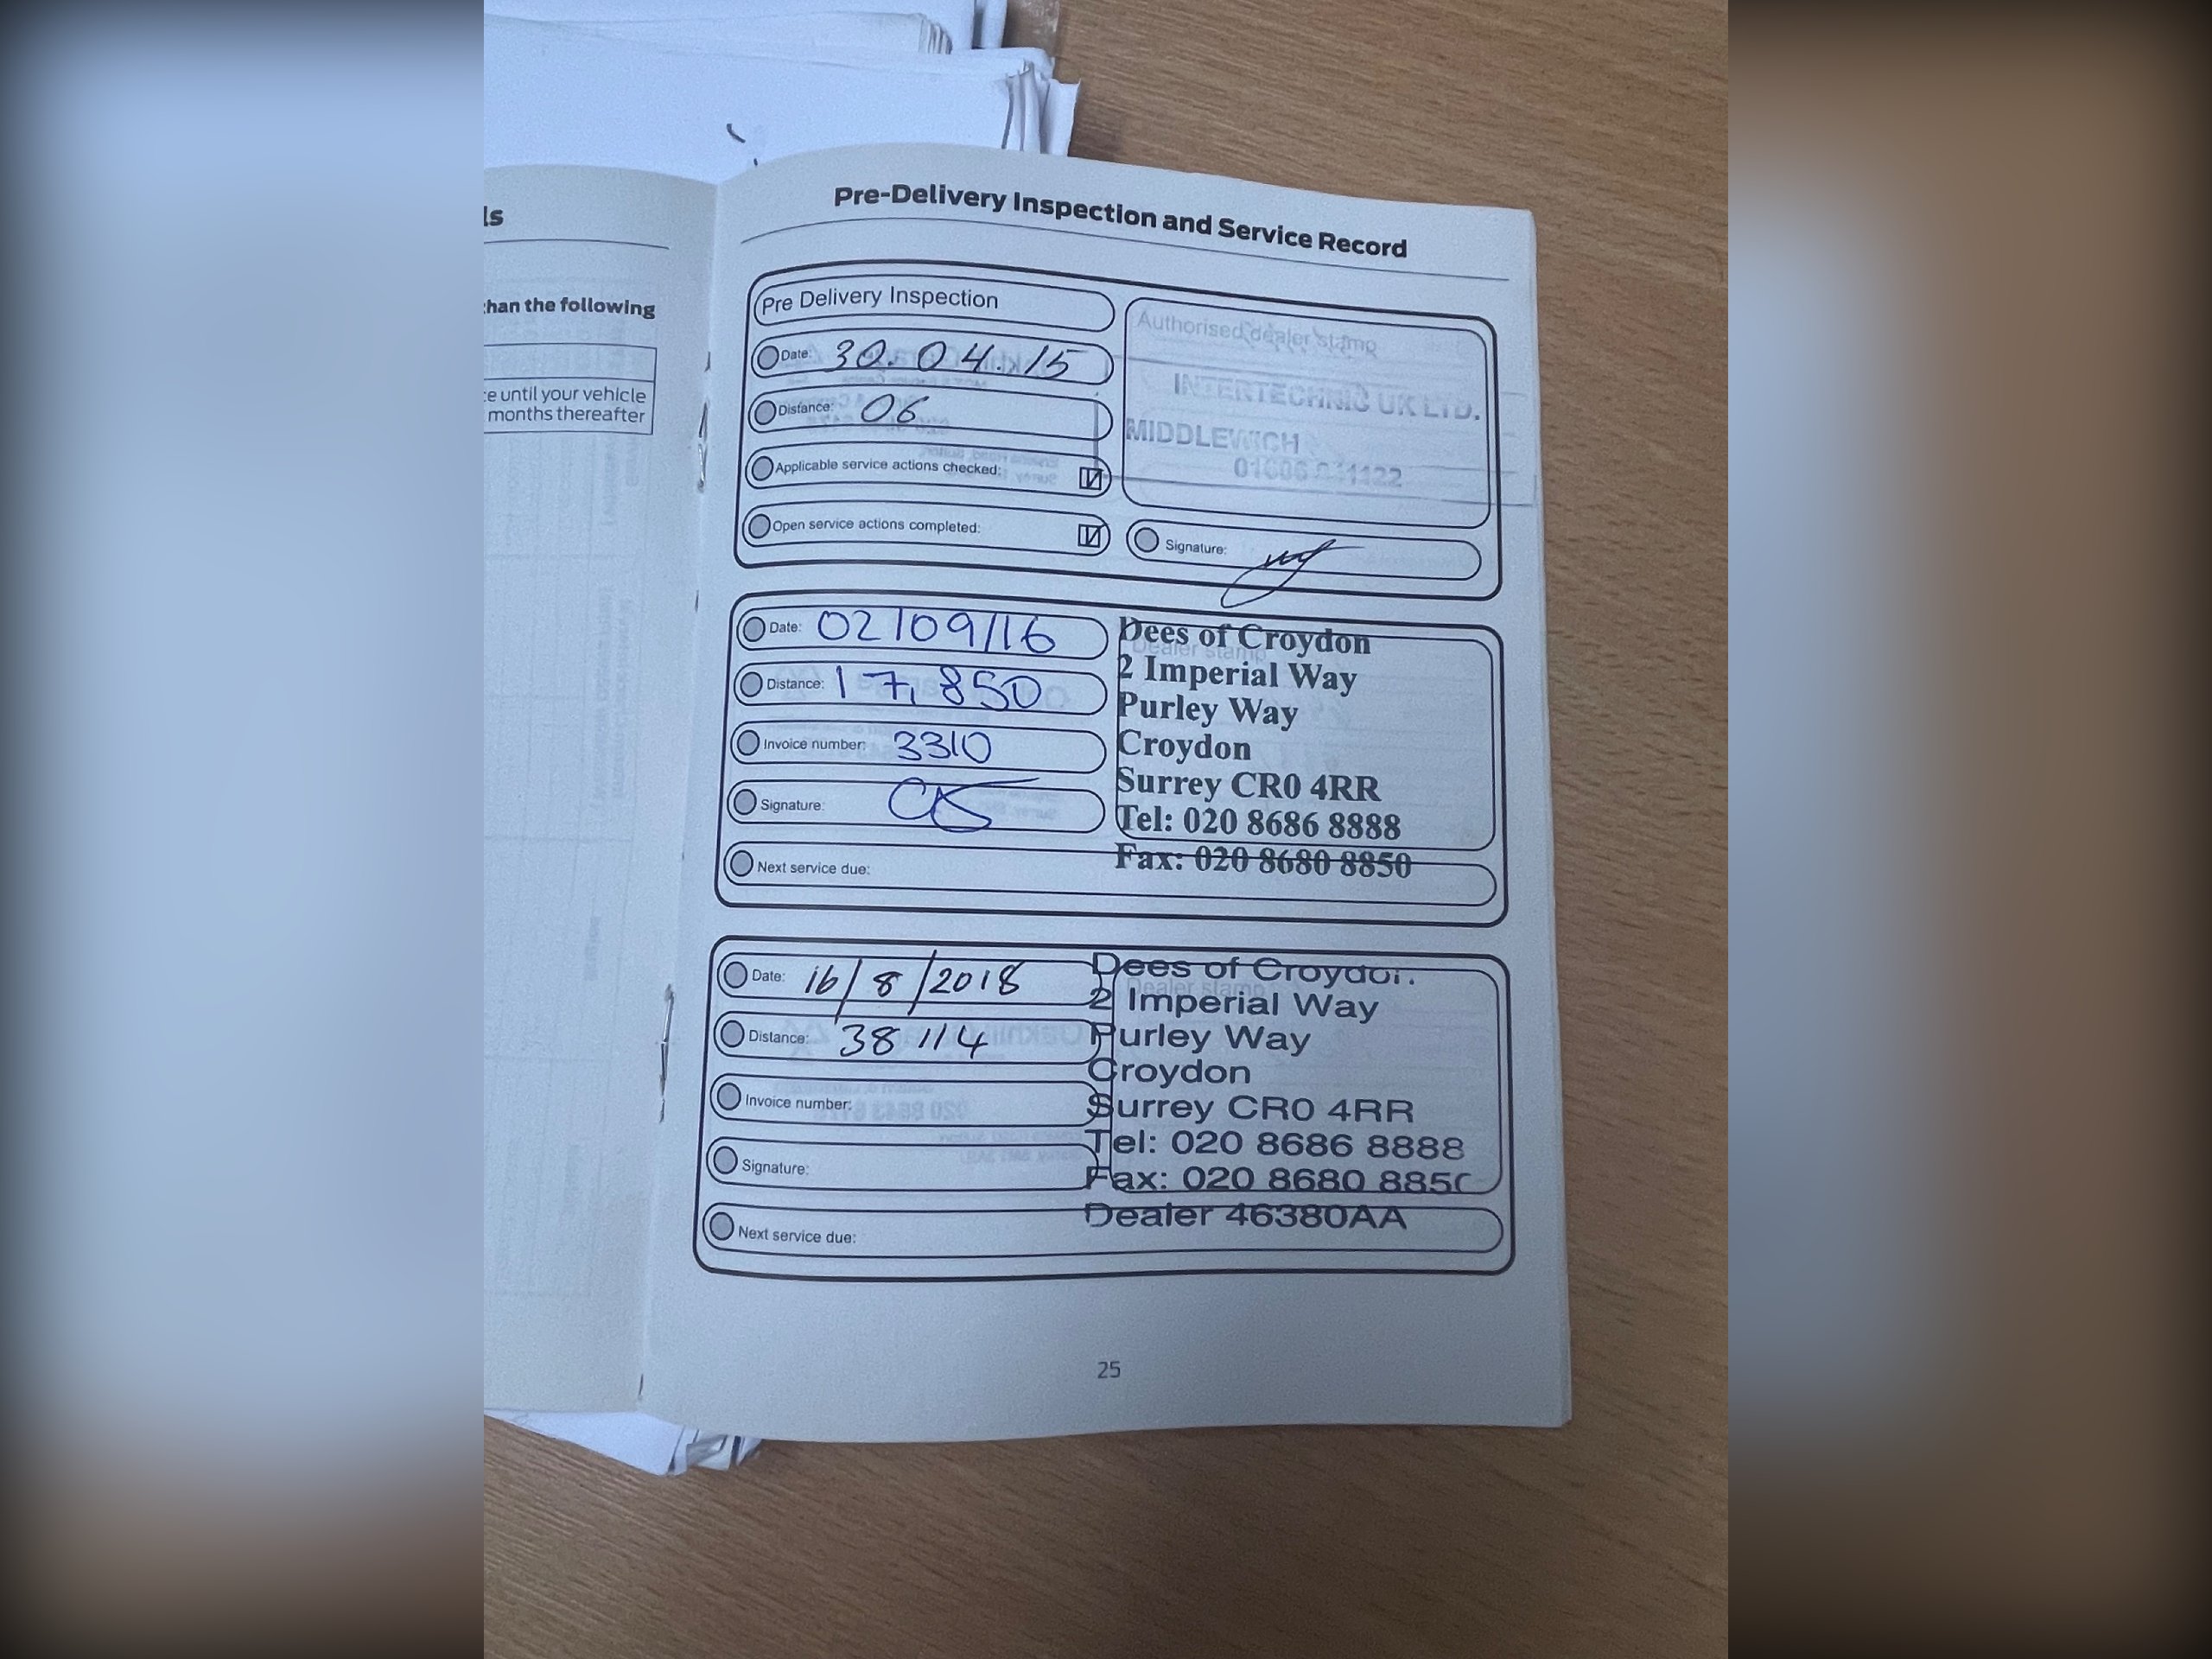 ls
han the following
e until your vehicle
months thereafter
Pre-Delivery Inspection and Service Record
Pre Delivery Inspection
Date: 30.04.15
Distance: 06
Applicable service actions checked:
Open service actions completed:
Authorised dealer stamp
INTERTECHNIC UK LTD.
MIDDLEWICH
Signature:
Date: 02/09/16
Distance: 17,850
Invoice number: 3310
Signature:
Next service due:
Dealer stamp
Dees of Croydon
2 Imperial Way
Purley Way
Croydon
Surrey CR0 4RR
Tel: 020 8686 8888
Fax: 020 8680 8850
Date: 16/8/2018
Distance: 38114
Invoice number:
Signature:
Next service due:
Dealer stamp
Dees of Croydon
2 Imperial Way
Purley Way
Croydon
Surrey CR0 4RR
Tel: 020 8686 8888
Fax: 020 8680 8850
Dealer 46380AA
25